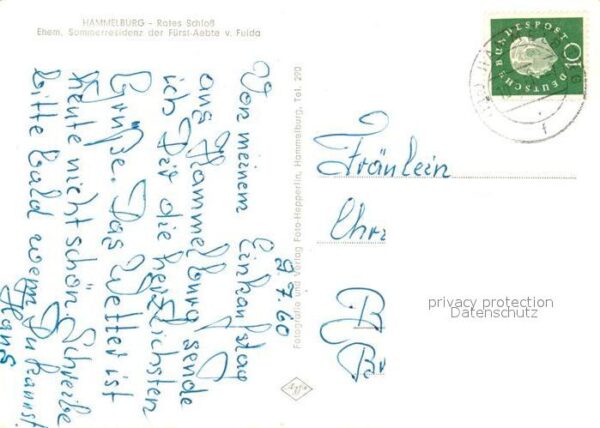 HAMMELBURG - Rotes Schloß
Ehem. Sommerresidenz der Fürst-Aebte v. Fulda
9.7.60
Von meinem Einkaufstag
aus Hammelburg sende
ich Dir die herzlichsten
Grüße. Das Wetter ist
heute nicht schön. Schreibe
bitte bald wenn Du kannst.
Hans
Fotografie und Verlag Foto-Hepperlin, Hammelburg, Tel. 290
Agfa
DEUTSCHE BUNDESPOST
10
Fräulein
Chr
B
Br
privacy protection
Datenschutz